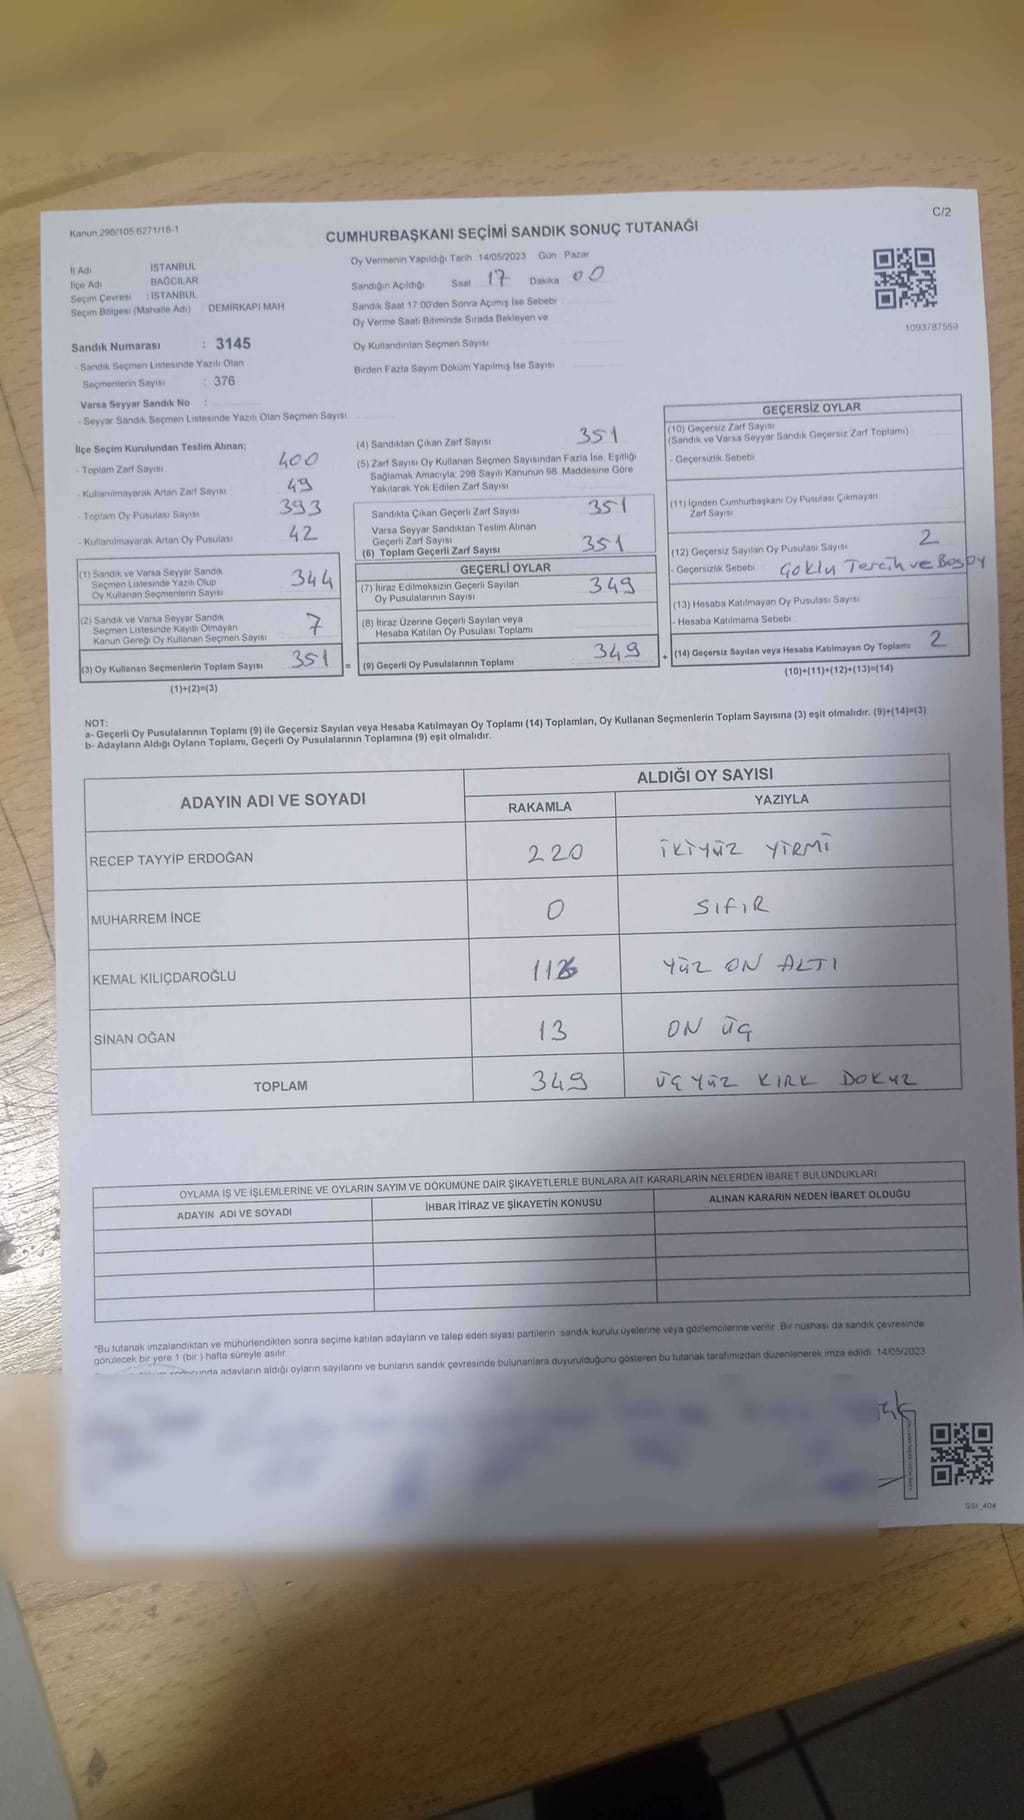 Kanun:298/105,6271/18-1
C/2
CUMHURBAŞKANI SEÇİMİ SANDIK SONUÇ TUTANAĞI
İl Adı İSTANBUL
İlçe Adı BAĞCILAR
Seçim Çevresi : İSTANBUL
Seçim Bölgesi (Mahalle Adı) : DEMİRKAPI MAH
Oy Vermenin Yapıldığı Tarih 14/05/2023 Gün : Pazar
Sandığın Açıldığı Saat 17 Dakika 00
Sandık Saat 17:00'den Sonra Açımış İse Sebebi
Oy Verme Saati Bitiminde Sırada Bekleyen ve
Oy Kullandırılan Seçmen Sayısı
Birden Fazla Sayım Döküm Yapılmış İse Sayısı
1093787559
Sandık Numarası : 3145
- Sandık Seçmen Listesinde Yazılı Olan
Seçmenlerin Sayısı : 376
Varsa Seyyar Sandık No :
- Seyyar Sandık Seçmen Listesinde Yazılı Olan Seçmen Sayısı
İlçe Seçim Kurulundan Teslim Alınan;
- Toplam Zarf Sayısı 400
- Kullanılmayarak Artan Zarf Sayısı 49
- Toplam Oy Pusulası Sayısı 393
- Kullanılmayarak Artan Oy Pusulası 42
(1) Sandık ve Varsa Seyyar Sandık
Seçmen Listesinde Yazılı Olup
Oy Kullanan Seçmenlerin Sayısı 344
(2) Sandık ve Varsa Seyyar Sandık
Seçmen Listesinde Kayıtlı Olmayan
Kanun Gereği Oy Kullanan Seçmen Sayısı 7
(3) Oy Kullanan Seçmenlerin Toplam Sayısı 351 =
(1)+(2)=(3)
(4) Sandıktan Çıkan Zarf Sayısı 351
(5) Zarf Sayısı Oy Kullanan Seçmen Sayısından Fazla İse, Eşitliği
Sağlamak Amacıyla, 298 Sayılı Kanunun 98. Maddesine Göre
Yakılarak Yok Edilen Zarf Sayısı
Sandıkta Çıkan Geçerli Zarf Sayısı 351
Varsa Seyyar Sandıktan Teslim Alınan
Geçerli Zarf Sayısı
(6) Toplam Geçerli Zarf Sayısı 351
GEÇERLİ OYLAR
(7) İtiraz Edilmeksizin Geçerli Sayılan
Oy Pusulalarının Sayısı 349
(8) İtiraz Üzerine Geçerli Sayılan veya
Hesaba Katılan Oy Pusulası Toplamı
(9) Geçerli Oy Pusulalarının Toplamı 349 +
GEÇERSİZ OYLAR
(10) Geçersiz Zarf Sayısı
(Sandık ve Varsa Seyyar Sandık Geçersiz Zarf Toplamı)
- Geçersizlik Sebebi
(11) İçinden Cumhurbaşkanı Oy Pusulası Çıkmayan
Zarf Sayısı
(12) Geçersiz Sayılan Oy Pusulası Sayısı 2
- Geçersizlik Sebebi Çoklu Tercih ve Boş oy
(13) Hesaba Katılmayan Oy Pusulası Sayısı
- Hesaba Katılmama Sebebi
(14) Geçersiz Sayılan veya Hesaba Katılmayan Oy Toplamı 2
(10)+(11)+(12)+(13)=(14)
NOT:
a- Geçerli Oy Pusulalarının Toplamı (9) ile Geçersiz Sayılan veya Hesaba Katılmayan Oy Toplamı (14) Toplamları, Oy Kullanan Seçmenlerin Toplam Sayısına (3) eşit olmalıdır. (9)+(14)=(3)
b- Adayların Aldığı Oyların Toplamı, Geçerli Oy Pusulalarının Toplamına (9) eşit olmalıdır.
ADAYIN ADI VE SOYADI ALDIĞI OY SAYISI
RAKAMLA YAZIYLA
RECEP TAYYİP ERDOĞAN 220 İKİYÜZ YİRMİ
MUHARREM İNCE 0 SIFIR
KEMAL KILIÇDAROĞLU 116 YÜZ ON ALTI
SİNAN OĞAN 13 ON ÜÇ
TOPLAM 349 ÜÇ YÜZ KIRK DOKUZ
OYLAMA İŞ VE İŞLEMLERİNE VE OYLARIN SAYIM VE DÖKÜMÜNE DAİR ŞİKAYETLERLE BUNLARA AİT KARARLARIN NELERDEN İBARET BULUNDUKLARI
ADAYIN ADI VE SOYADI İHBAR İTİRAZ VE ŞİKAYETİN KONUSU ALINAN KARARIN NEDEN İBARET OLDUĞU
*Bu tutanak imzalandıktan ve mühürlendikten sonra seçime katılan adayların ve talep eden siyasi partilerin sandık kurulu üyelerine veya gözlemcilerine verilir. Bir nüshası da sandık çevresinde
görülecek bir yere 1 (bir ) hafta süreyle asılır.
sonucunda adayların aldığı oyların sayılarını ve bunların sandık çevresinde bulunanlara duyurulduğunu gösteren bu tutanak tarafımızdan düzenlenerek imza edildi. 14/05/2023
SSI_404